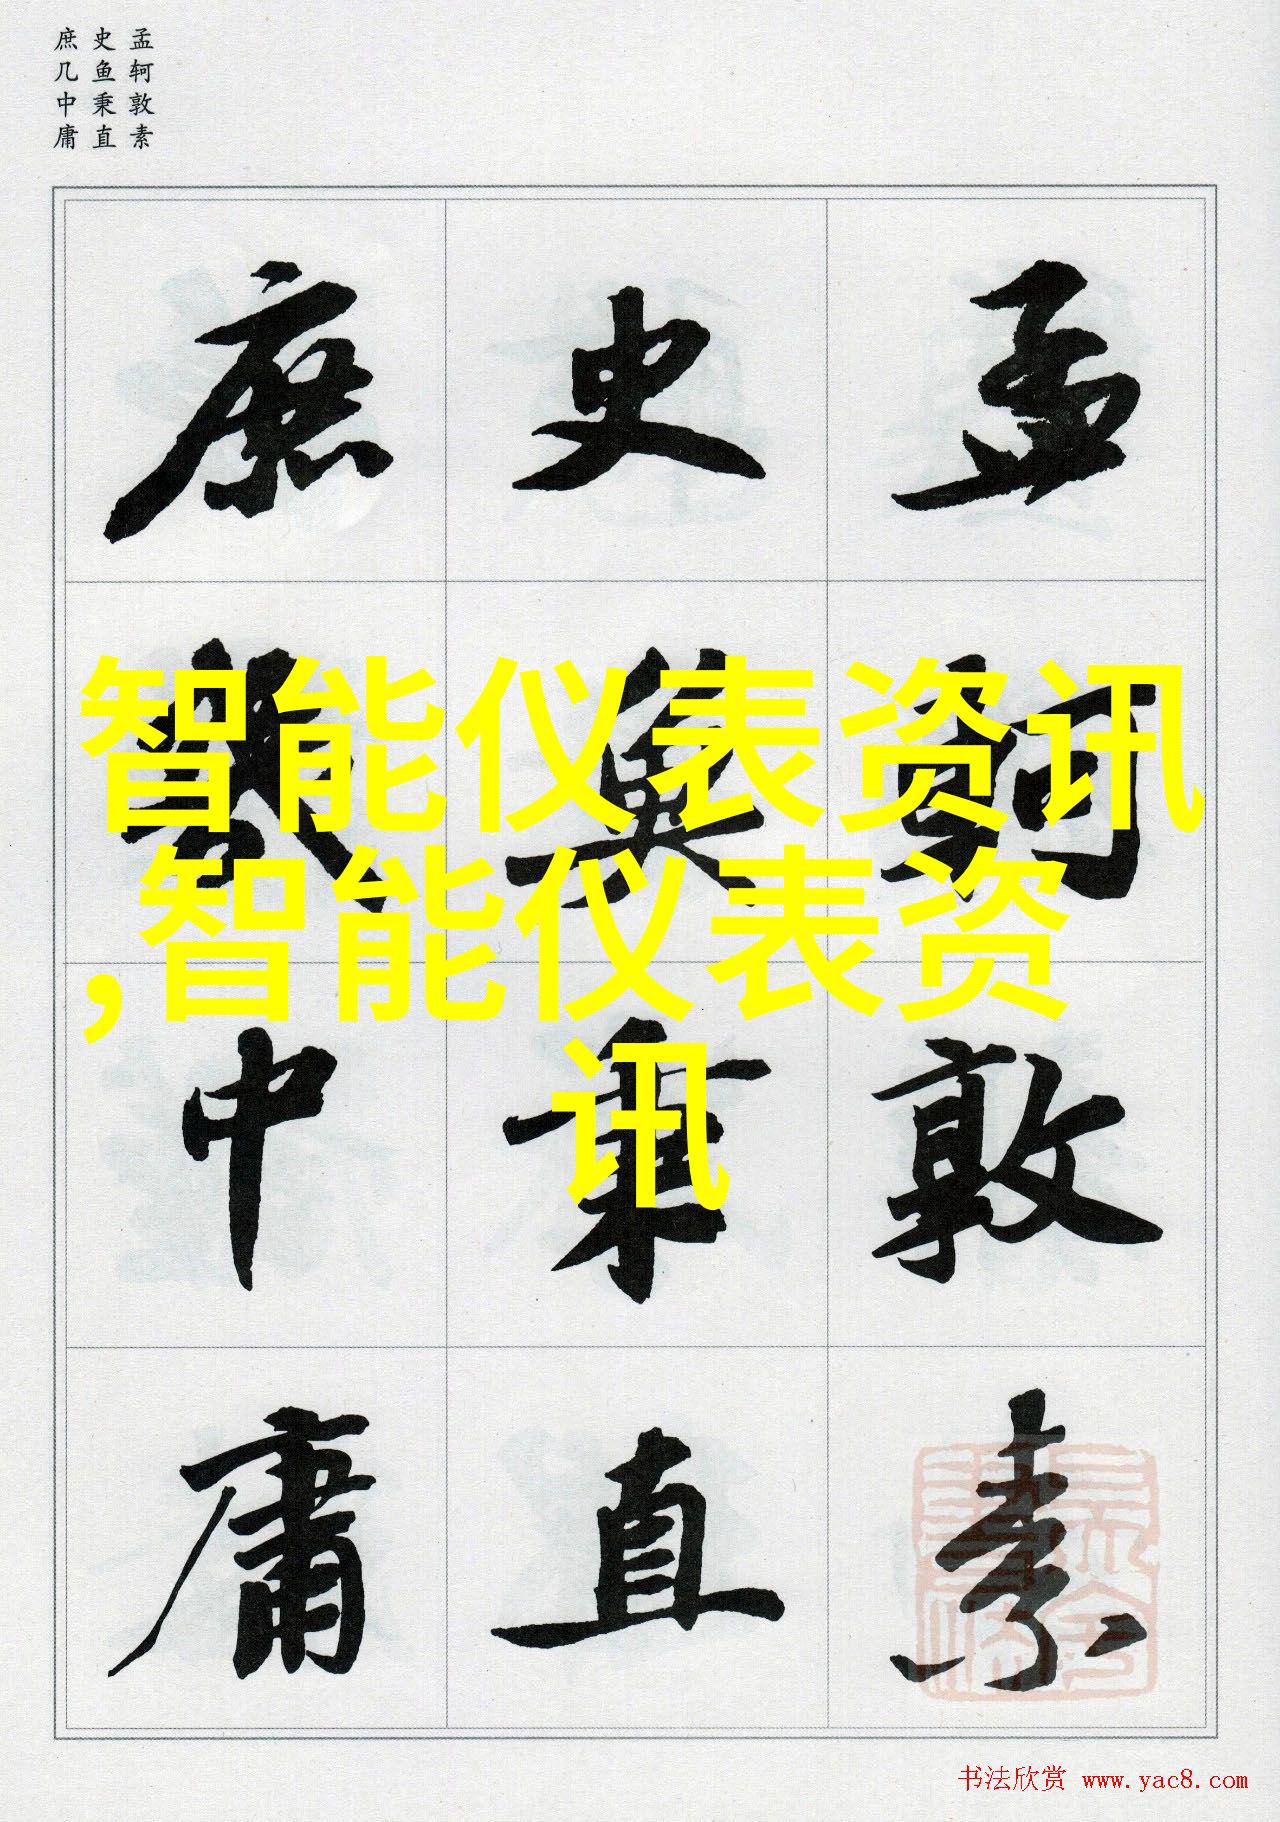 孟轲敦素
史鱼秉直
庶几中庸
孟轲敦素
史鱼秉直
庶几中庸
智能仪表资讯
,智能仪表资
讯
书法欣赏 www.yac8.com